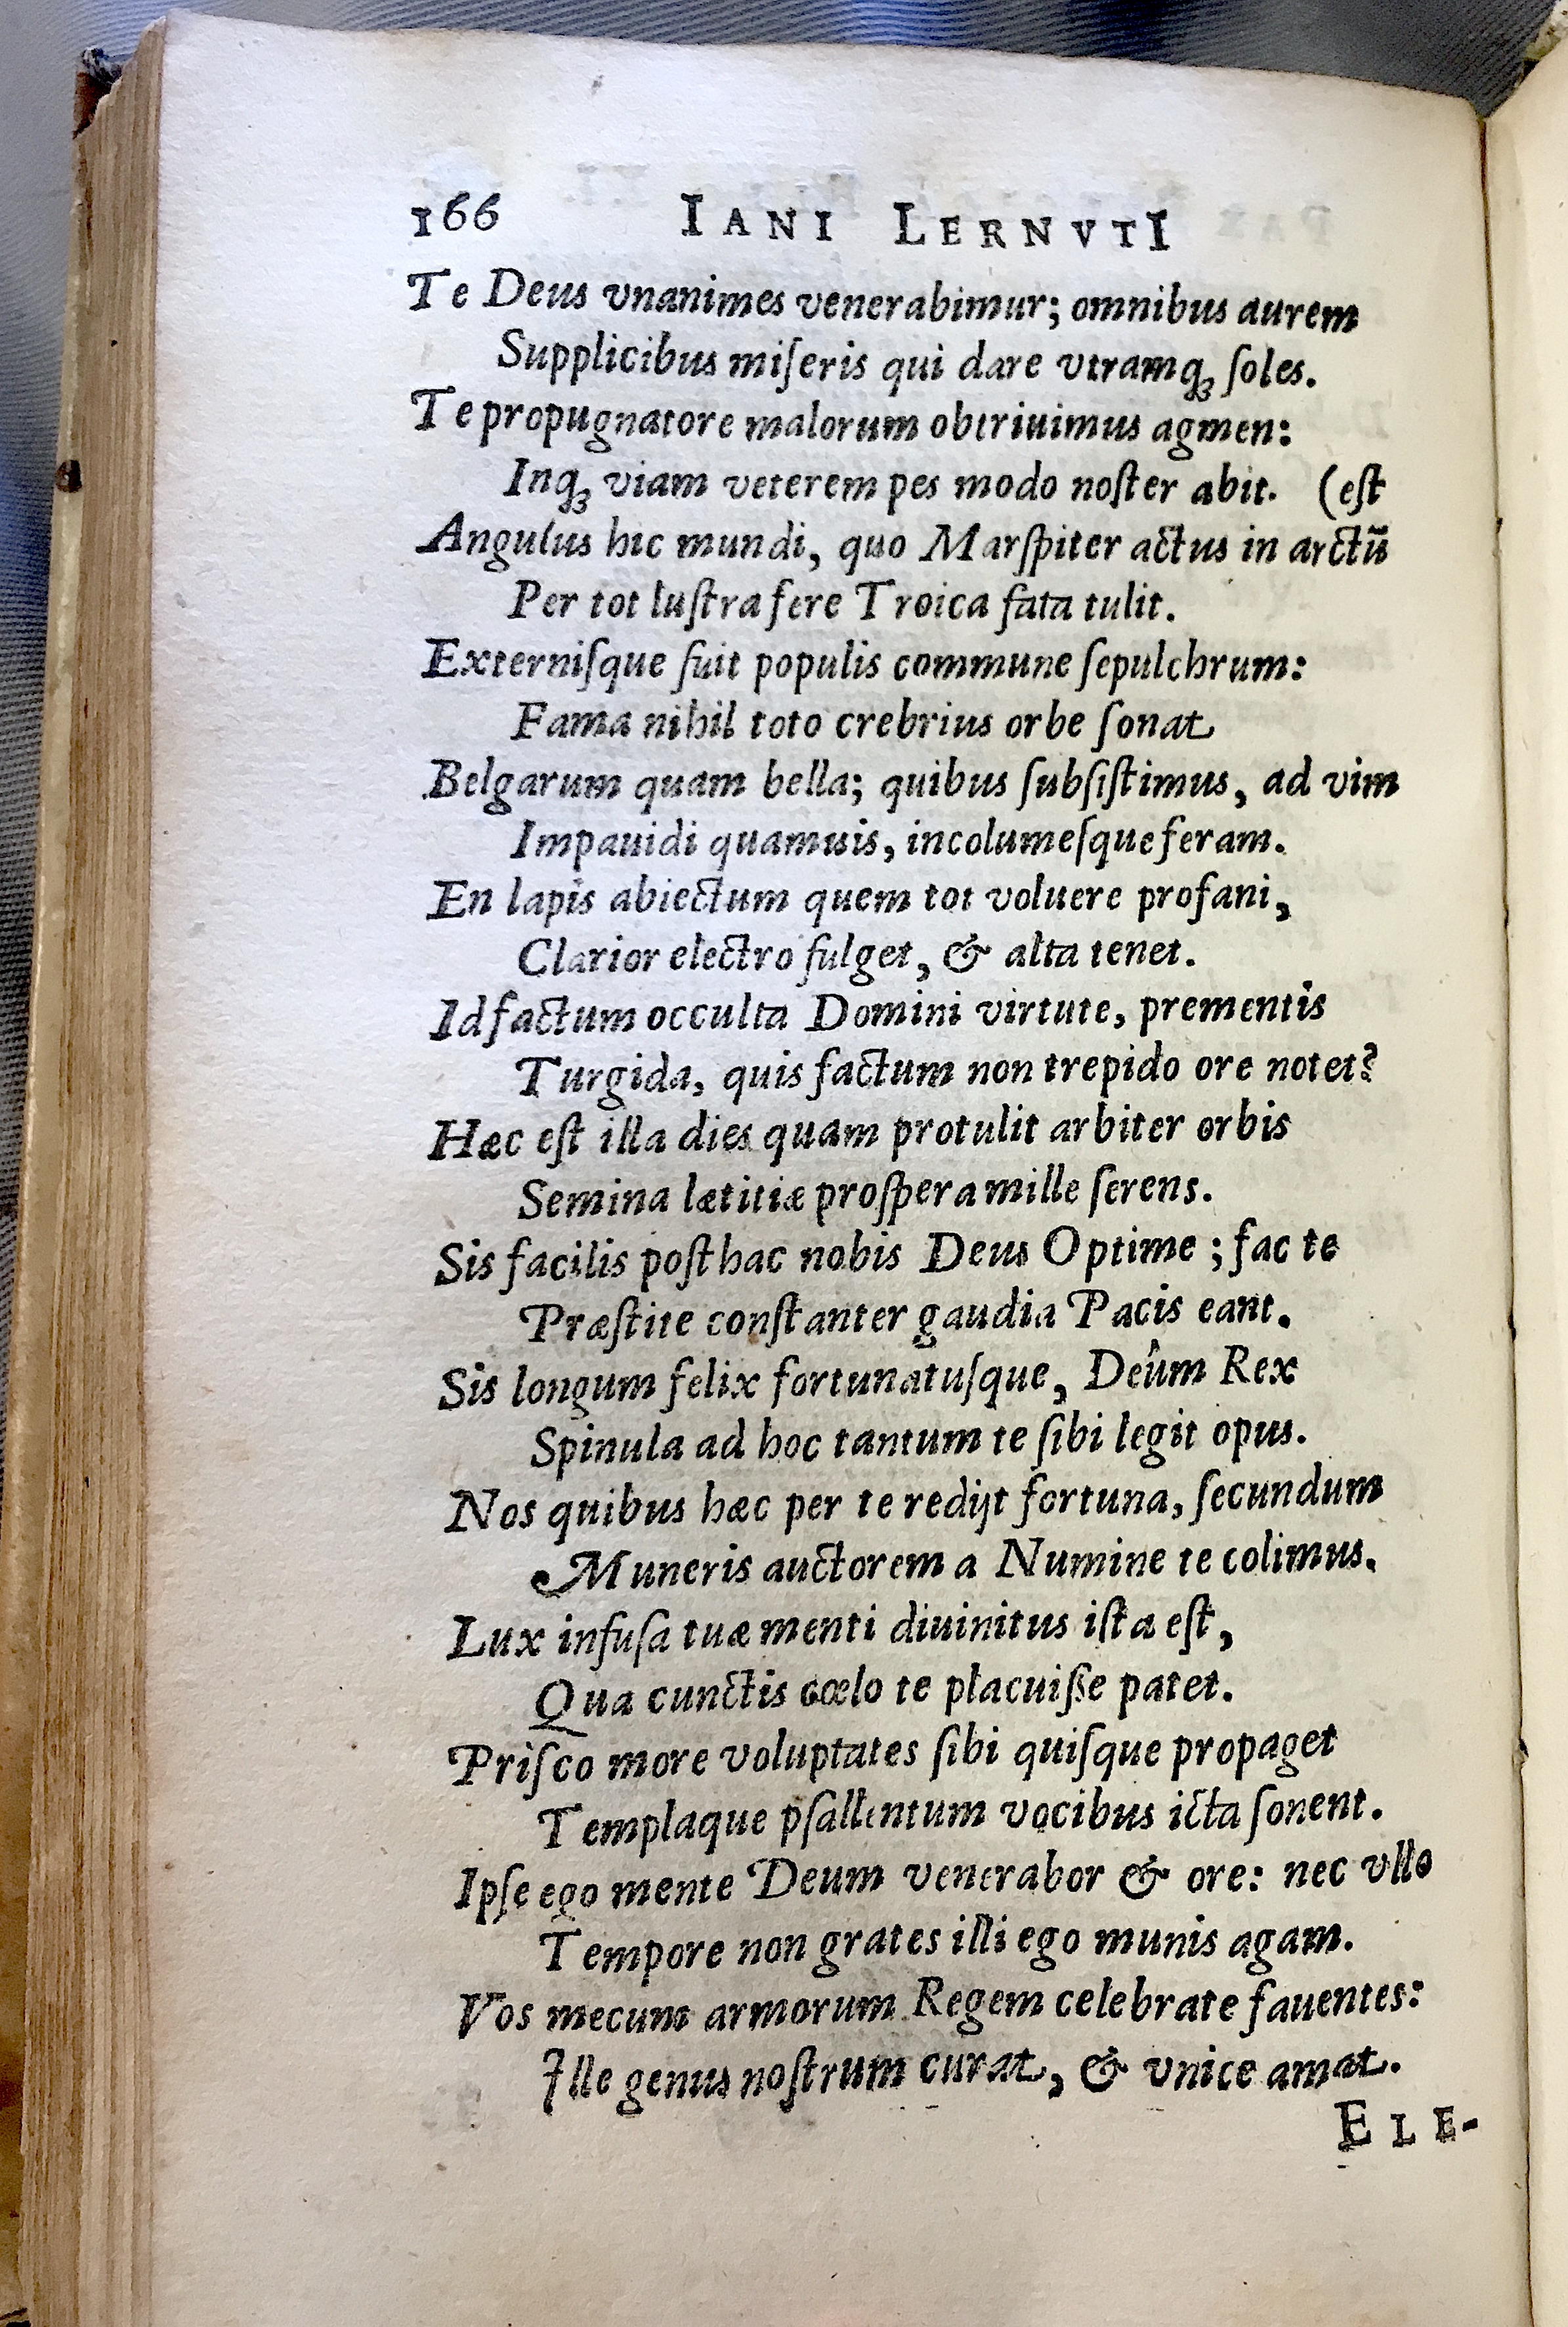 166 IANI LERNVTI
Te Deus vnanimes venerabimur; omnibus aurem
Supplicibus miſeris qui dare vtramqꝫ ſoles.
Te propugnatore malorum obtriuimus agmen:
Inqꝫ viam veterem pes modo noſter abit. (eſt
Angulus hic mundi, quo Marſpiter actus in arctũ
Per tot luſtra fere Troica fata tulit.
Externiſque fuit populis commune ſepulchrum:
Fama nihil toto crebrius orbe ſonat
Belgarum quam bella; quibus ſubſiſtimus, ad vim
Impauidi quamuis, incolumeſque feram.
En lapis abiectum quem tot voluere profani,
Clarior electro fulget, & alta tenet.
Id factum occulta Domini virtute, prementis
Turgida, quis factum non trepido ore notet?
Hæc eſt illa dies quam protulit arbiter orbis
Semina lætitiæ proſpera mille ſerens.
Sis facilis poſthac nobis Deus Optime; fac te
Præſtite conſtanter gaudia Pacis eant.
Sis longum felix fortunatuſque, Deûm Rex
Spinula ad hoc tantum te ſibi legit opus.
Nos quibus hæc per te redijt fortuna, ſecundum
Muneris auctorem a Numine te colimus.
Lux infuſa tuæ menti diuinitus iſta eſt,
Qua cunctis cœlo te placuiſſe patet.
Priſco more voluptates ſibi quiſque propaget
Templaque pſallentum vocibus icta ſonent.
Ipſe ego mente Deum venerabor & ore: nec vllo
Tempore non grates illi ego munis agam.
Vos mecum armorum Regem celebrate fauentes:
Ille genus noſtrum curat, & vnice amat.
ELE-